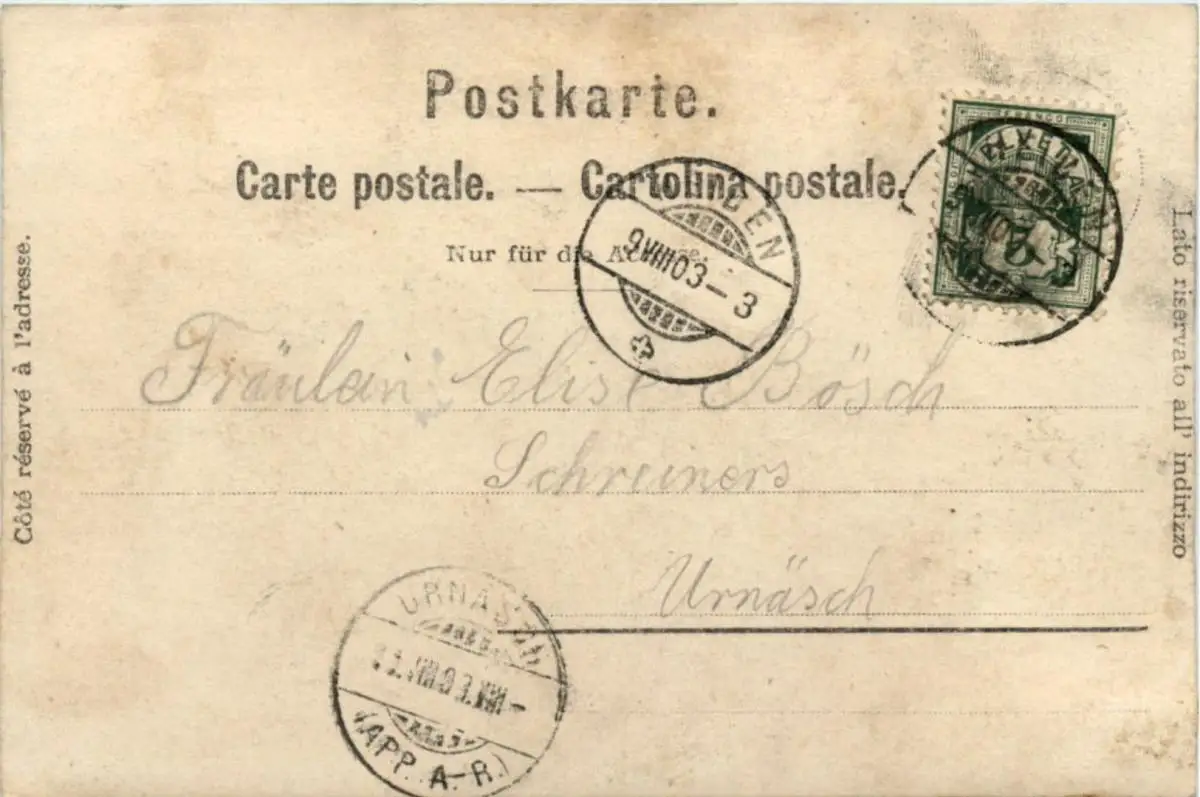 Postkarte.
Carte postale. — Cartolina postale.
Nur für die
Côté réservé à l'adresse.
Lato riservato all' indirizzo
DEN
9 VIII 03 – 3
FRANCO
5
Fräulein Elise Bösch
Schreiners
Urnäsch
URNÄSCH
VIII 03. VIII –
(APP. A.-R.)